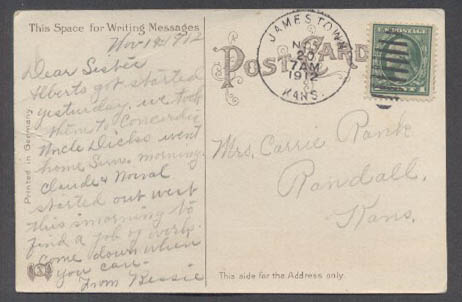 This Space for Writing Messages
Nov 19 1912
Dear Sister
Alberts got started
yesterday. we took
them to Concordia
Uncle Dicks went
home Sun. morning
Claude &
started out west
this morning to
find a job of work.
come down when
you can.
from Bessie
Printed in Germany
POST CARD
JAMESTOWN
NOV
20
AM
1912
KANS.
Mrs. Carrie Rank
Randall,
Kans.
This side for the Address only.